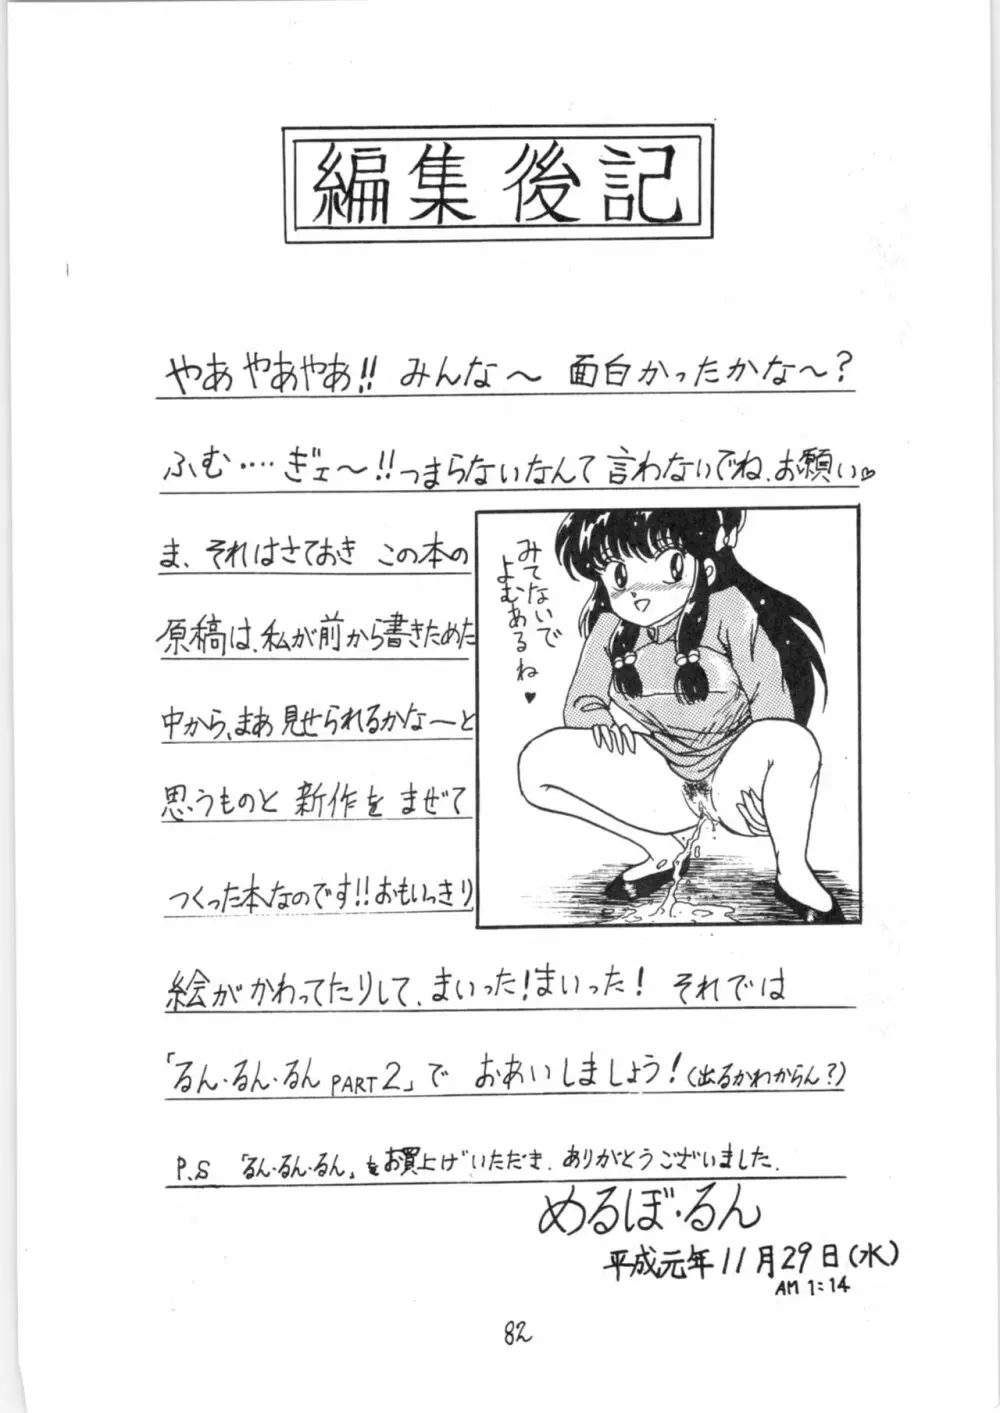 編集後記
やあ やあやあ!! みんな～ 面白かったかな～?
ふむ‥‥ぎェ～!!つまらないなんて言わないでね、お願い♡
ま、それはさておき この本の
原稿は、私が前から書きためた
中から、まあ見せられるかな～と
思うものと 新作を まぜて
つくった本なのです!!おもいっきり
みてないで
よむあるね♥
絵がかわってたりして、まいった!まいった! それでは
「るん・るん・るん PART2」で おあいしましょう!(出るかわからん?)
P.S 「るん・るん・るん」をお買上げいただき、ありがとうございました。
めるぼ・るん
平成元年11月29日(水)
AM 1:14
82